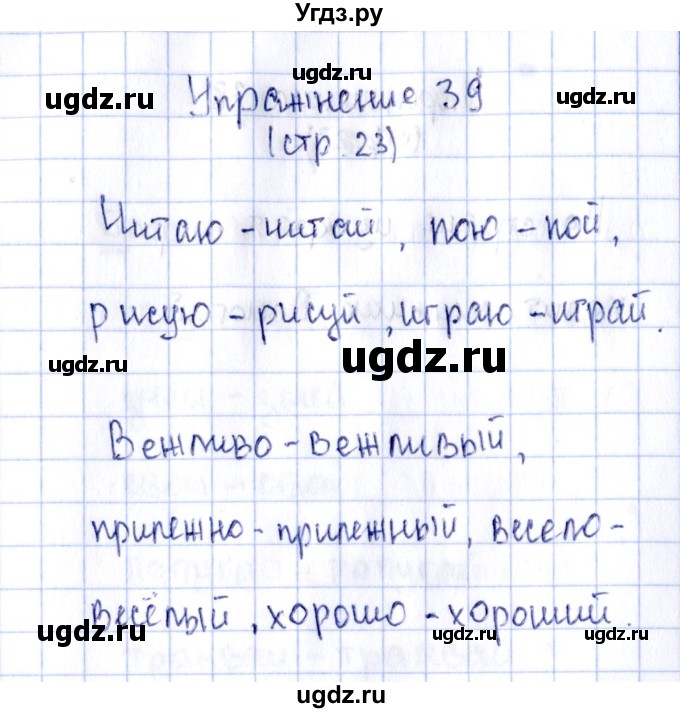 Угдз.ру
ugdz.ru ugdz.ru ugdz.ru
Упражнение 39
(стр. 23)
Читаю - читай, пою - пой,
рисую - рисуй, играю - играй.
ugdz.ru ugdz.ru ugdz.ru
Вежливо - вежливый,
прилежно - прилежный, весело -
весёлый, хорошо - хороший.
ugdz.ru ugdz.ru ugdz.ru
ugdz.ru